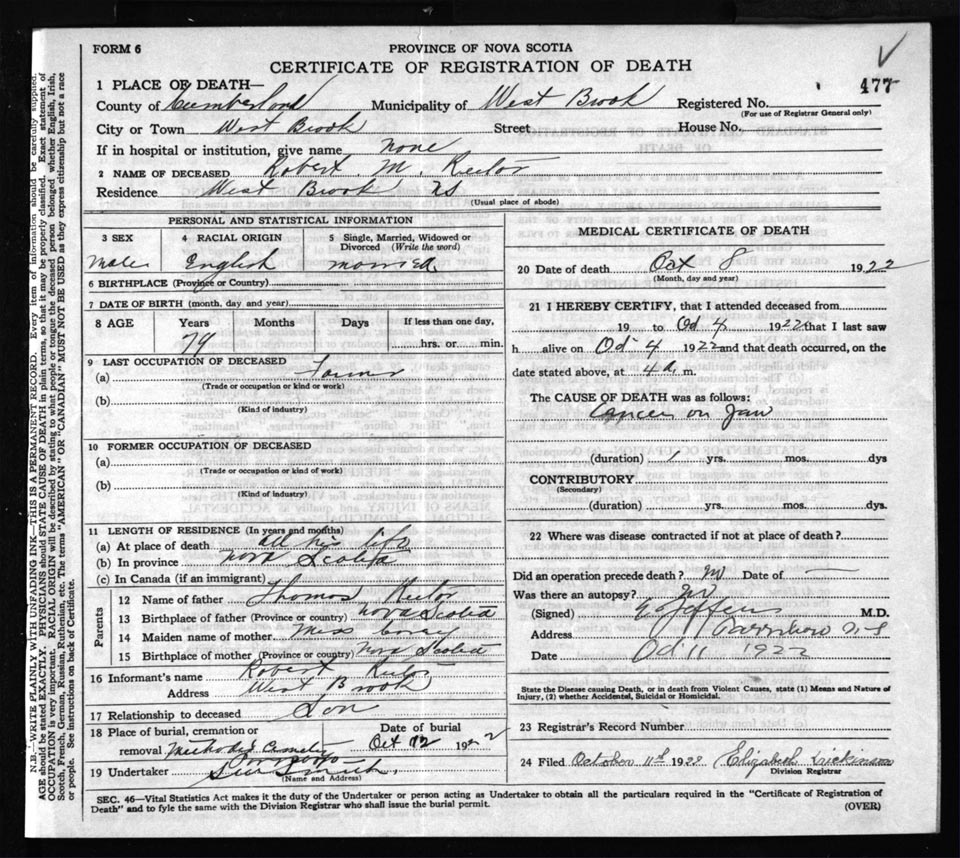 FORM 6
PROVINCE OF NOVA SCOTIA
CERTIFICATE OF REGISTRATION OF DEATH
477
1 PLACE OF DEATH—
County of Cumberland Municipality of West Brook Registered No.
(For use of Registrar General only)
City or Town West Brook Street House No.
If in hospital or institution, give name none
2 NAME OF DECEASED Robert M. Rector
Residence West Brook NS
(Usual place of abode)
PERSONAL AND STATISTICAL INFORMATION
3 SEX 4 RACIAL ORIGIN 5 Single, Married, Widowed or Divorced (Write the word)
Male English married
6 BIRTHPLACE (Province or Country)
7 DATE OF BIRTH (month, day and year)
8 AGE Years Months Days If less than one day,
79 hrs. or min.
9 LAST OCCUPATION OF DECEASED
(a) Farmer
(Trade or occupation or kind or work)
(b)
(Kind of industry)
10 FORMER OCCUPATION OF DECEASED
(a)
(Trade or occupation or kind of work)
(b)
(Kind of industry)
11 LENGTH OF RESIDENCE (In years and months)
(a) At place of death all his life
(b) In province nova Scotia
(c) In Canada (if an immigrant)
Parents
12 Name of father Thomas Rector
13 Birthplace of father (Province or country) nova Scotia
14 Maiden name of mother Miss
15 Birthplace of mother (Province or country) Nova Scotia
16 Informant's name Robert Rector
Address West Brook
17 Relationship to deceased Son
18 Place of burial, cremation or removal Methodist Cemetery
Date of burial
Oct 12 1922
19 Undertaker Smith
(Name and Address)
MEDICAL CERTIFICATE OF DEATH
20 Date of death Oct 8 1922
(Month, day and year)
21 I HEREBY CERTIFY, that I attended deceased from
19 to Oct 4 1922 that I last saw
h alive on Oct 4 1922 and that death occurred, on the
date stated above, at 4 a. m.
The CAUSE OF DEATH was as follows:
Cancer on Jaw
(duration) 1 yrs. mos. dys
CONTRIBUTORY
(Secondary)
(duration) yrs. mos. dys
22 Where was disease contracted if not at place of death?
Did an operation precede death? no Date of —
Was there an autopsy? no
(Signed) M.D.
Address Parrsboro N-S
Date Oct 11 1922
State the Disease causing Death, or in death from Violent Causes, state (1) Means and Nature of
Injury, (2) whether Accidental, Suicidal or Homicidal.
23 Registrar's Record Number
24 Filed October 11th 1922 Elizabeth Dickinson
Division Registrar
SEC. 46—Vital Statistics Act makes it the duty of the Undertaker or person acting as Undertaker to obtain all the particulars required in the "Certificate of Registration of
Death" and to fyle the same with the Division Registrar who shall issue the burial permit.
(OVER)
N.B.—WRITE PLAINLY WITH UNFADING INK—THIS IS A PERMANENT RECORD. Every item of information should be carefully supplied.
AGE should be stated EXACTLY. PHYSICIANS should STATE CAUSE OF DEATH in plain terms, so that it may be properly classified. Exact statement of
OCCUPATION is very important. RACIAL ORIGIN will be described by stating to what people or tongue the deceased person belonged whether English, Irish,
Scotch, French, German, Russian, Ruthenian, etc. The terms "AMERICAN" OR "CANADIAN" MUST NOT BE USED as they express citizenship but not a race
or people. See instructions on back of Certificate.